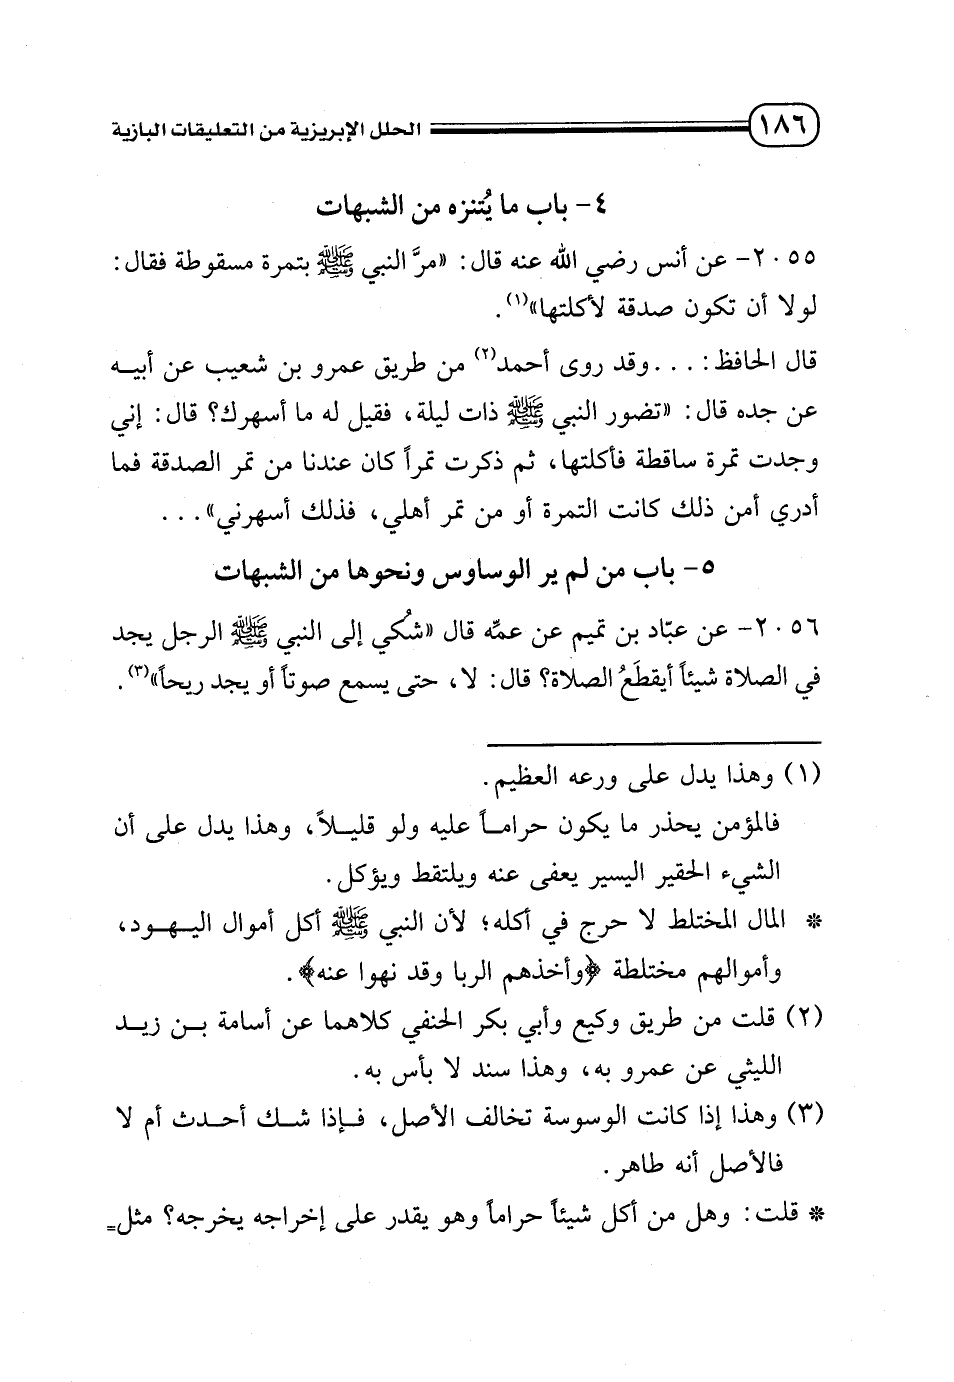 ١٨٦ الحلل الإبريزية من التعليقات البازية
٤- باب ما يُتنزه من الشبهات
٢٠٥٥- عن أنس رضي الله عنه قال: «مرَّ النبي ﷺ بتمرة مسقوطة فقال:
لولا أن تكون صدقة لأكلتها»(١).
قال الحافظ: ...وقد روى أحمد(٢) من طريق عمرو بن شعيب عن أبيه
عن جده قال: «تضور النبي ﷺ ذات ليلة، فقيل له ما أسهرك؟ قال: إني
وجدت تمرة ساقطة فأكلتها، ثم ذكرت تمراً كان عندنا من تمر الصدقة فما
أدري أمن ذلك كانت التمرة أو من تمر أهلي، فذلك أسهرني»...
٥- باب من لم ير الوساوس ونحوها من الشبهات
٢٠٥٦- عن عبَّاد بن تميم عن عمِّه قال «شُكي إلى النبي ﷺ الرجل يجد
في الصلاة شيئاً أيقطَعُ الصلاة؟ قال: لا، حتى يسمع صوتاً أو يجد ريحاً»(٣).
(١) وهذا يدل على ورعه العظيم.
فالمؤمن يحذر ما يكون حراماً عليه ولو قليلاً، وهذا يدل على أن
الشيء الحقير اليسير يعفى عنه ويلتقط ويؤكل.
* المال المختلط لا حرج في أكله؛ لأن النبي ﷺ أكل أموال اليهود،
وأموالهم مختلطة ﴿وأخذهم الربا وقد نهوا عنه﴾.
(٢) قلت من طريق وكيع وأبي بكر الحنفي كلاهما عن أسامة بن زيد
الليثي عن عمرو به، وهذا سند لا بأس به.
(٣) وهذا إذا كانت الوسوسة تخالف الأصل، فإذا شك أحدث أم لا
فالأصل أنه طاهر.
* قلت: وهل من أكل شيئاً حراماً وهو يقدر على إخراجه يخرجه؟ مثل=